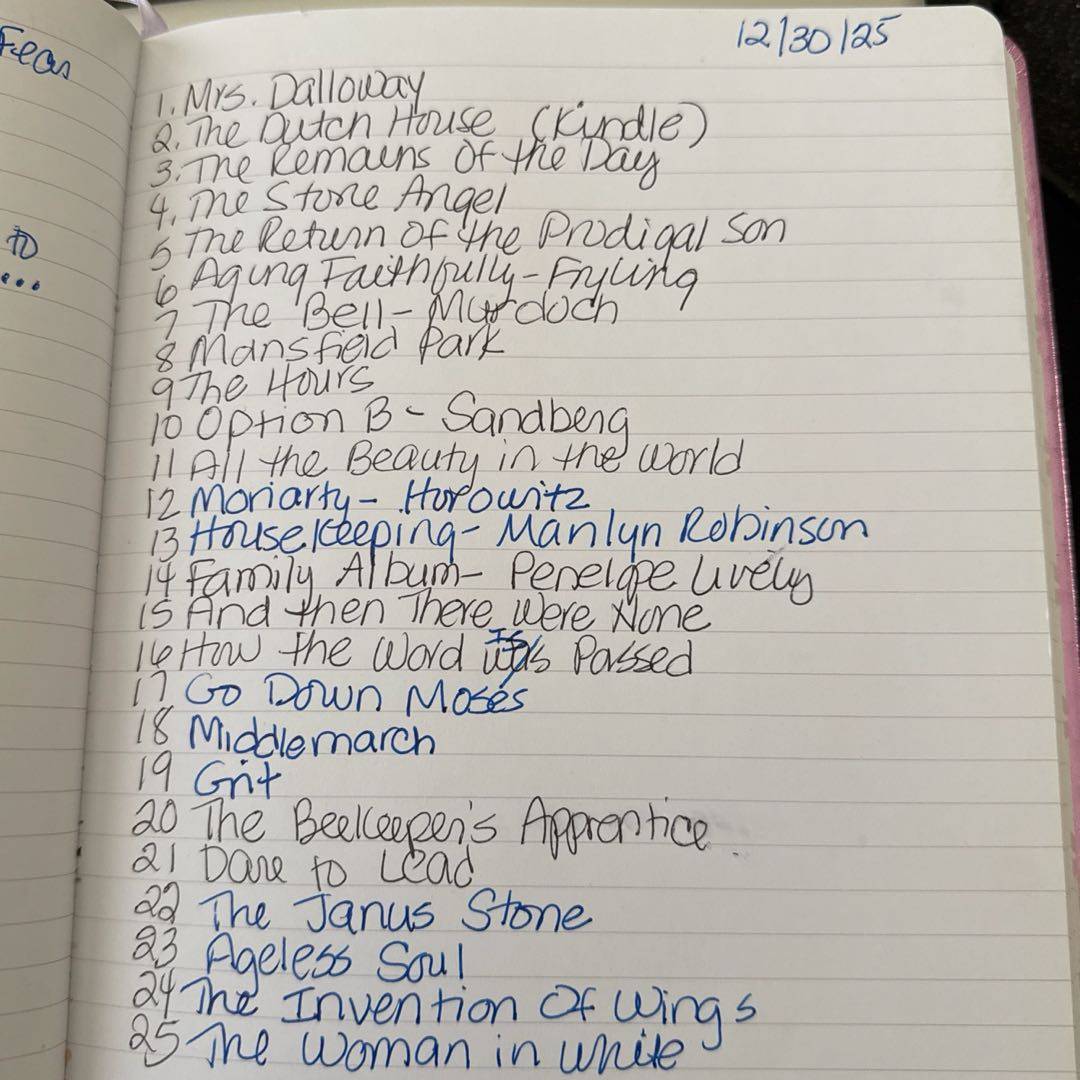 Fear
to
...
12/30/25
1. Mrs. Dalloway
2. The Dutch House (Kindle)
3. The Remains Of the Day
4. The Stone Angel
5 The Return Of the Prodigal Son
6 Aging Faithfully - Fryling
7 The Bell - Murdoch
8 Mansfield Park
9 The Hours
10 Option B - Sandberg
11 All the Beauty in the world
12 Moriarty - Horowitz
13 Housekeeping - Marilyn Robinson
14 Family Album - Penelope Lively
15 And then There Were None
16 How the Word Is Passed
17 Go Down Moses
18 Middlemarch
19 Grit
20 The Beekeeper's Apprentice
21 Dare to Lead
22 The Janus Stone
23 Ageless Soul
24 The Invention Of Wings
25 The Woman in White